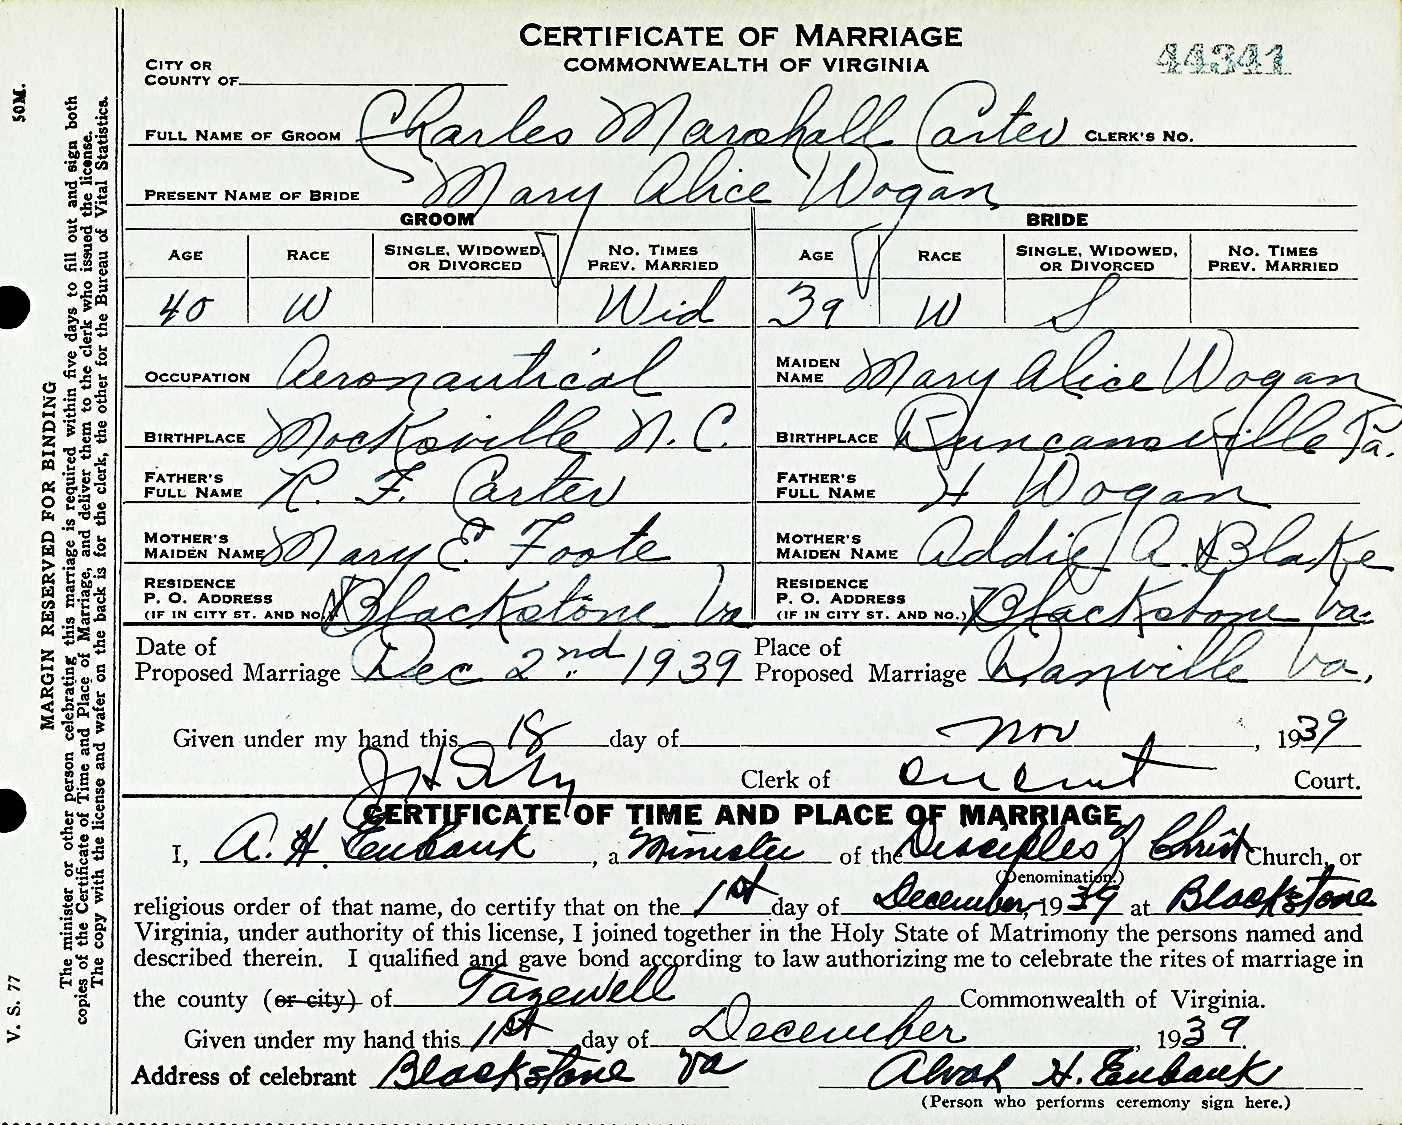 CERTIFICATE OF MARRIAGE
COMMONWEALTH OF VIRGINIA
44341
CITY OR
COUNTY OF
FULL NAME OF GROOM Charles Marshall Carter CLERK'S NO.
PRESENT NAME OF BRIDE Mary Alice Wogan
GROOM BRIDE
AGE RACE SINGLE, WIDOWED, OR DIVORCED NO. TIMES PREV. MARRIED AGE RACE SINGLE, WIDOWED, OR DIVORCED NO. TIMES PREV. MARRIED
40 W Wid 39 W S
OCCUPATION Aeronautical MAIDEN NAME Mary Alice Wogan
BIRTHPLACE Mocksville N. C. BIRTHPLACE Duncansville Pa.
FATHER'S FULL NAME R. F. Carter FATHER'S FULL NAME H Wogan
MOTHER'S MAIDEN NAME Mary E. Foote MOTHER'S MAIDEN NAME Addie A. Blake
RESIDENCE P. O. ADDRESS (IF IN CITY ST. AND NO.) Blackstone Va RESIDENCE P. O. ADDRESS (IF IN CITY ST. AND NO.) Blackstone Va.
Date of Proposed Marriage Dec 2nd 1939 Place of Proposed Marriage Danville Va.
Given under my hand this 18 day of Nov, 1939
Clerk of Circuit Court.
CERTIFICATE OF TIME AND PLACE OF MARRIAGE
I, A. H. Eubank, a Minister of the Disciples of Christ Church, or
(Denomination.)
religious order of that name, do certify that on the 1st day of December, 1939 at Blackstone
Virginia, under authority of this license, I joined together in the Holy State of Matrimony the persons named and
described therein. I qualified and gave bond according to law authorizing me to celebrate the rites of marriage in
the county (or city) of Tazewell Commonwealth of Virginia.
Given under my hand this 1st day of December, 1939.
Address of celebrant Blackstone Va Alvah H. Eubank
(Person who performs ceremony sign here.)
50M.
MARGIN RESERVED FOR BINDING
The minister or other person celebrating this marriage is required within five days to fill out and sign both
copies of the Certificate of Time and Place of Marriage, and deliver them to the clerk who issued the license.
The copy with the license and wafer on the back is for the clerk, the other for the Bureau of Vital Statistics.
V. S. 77